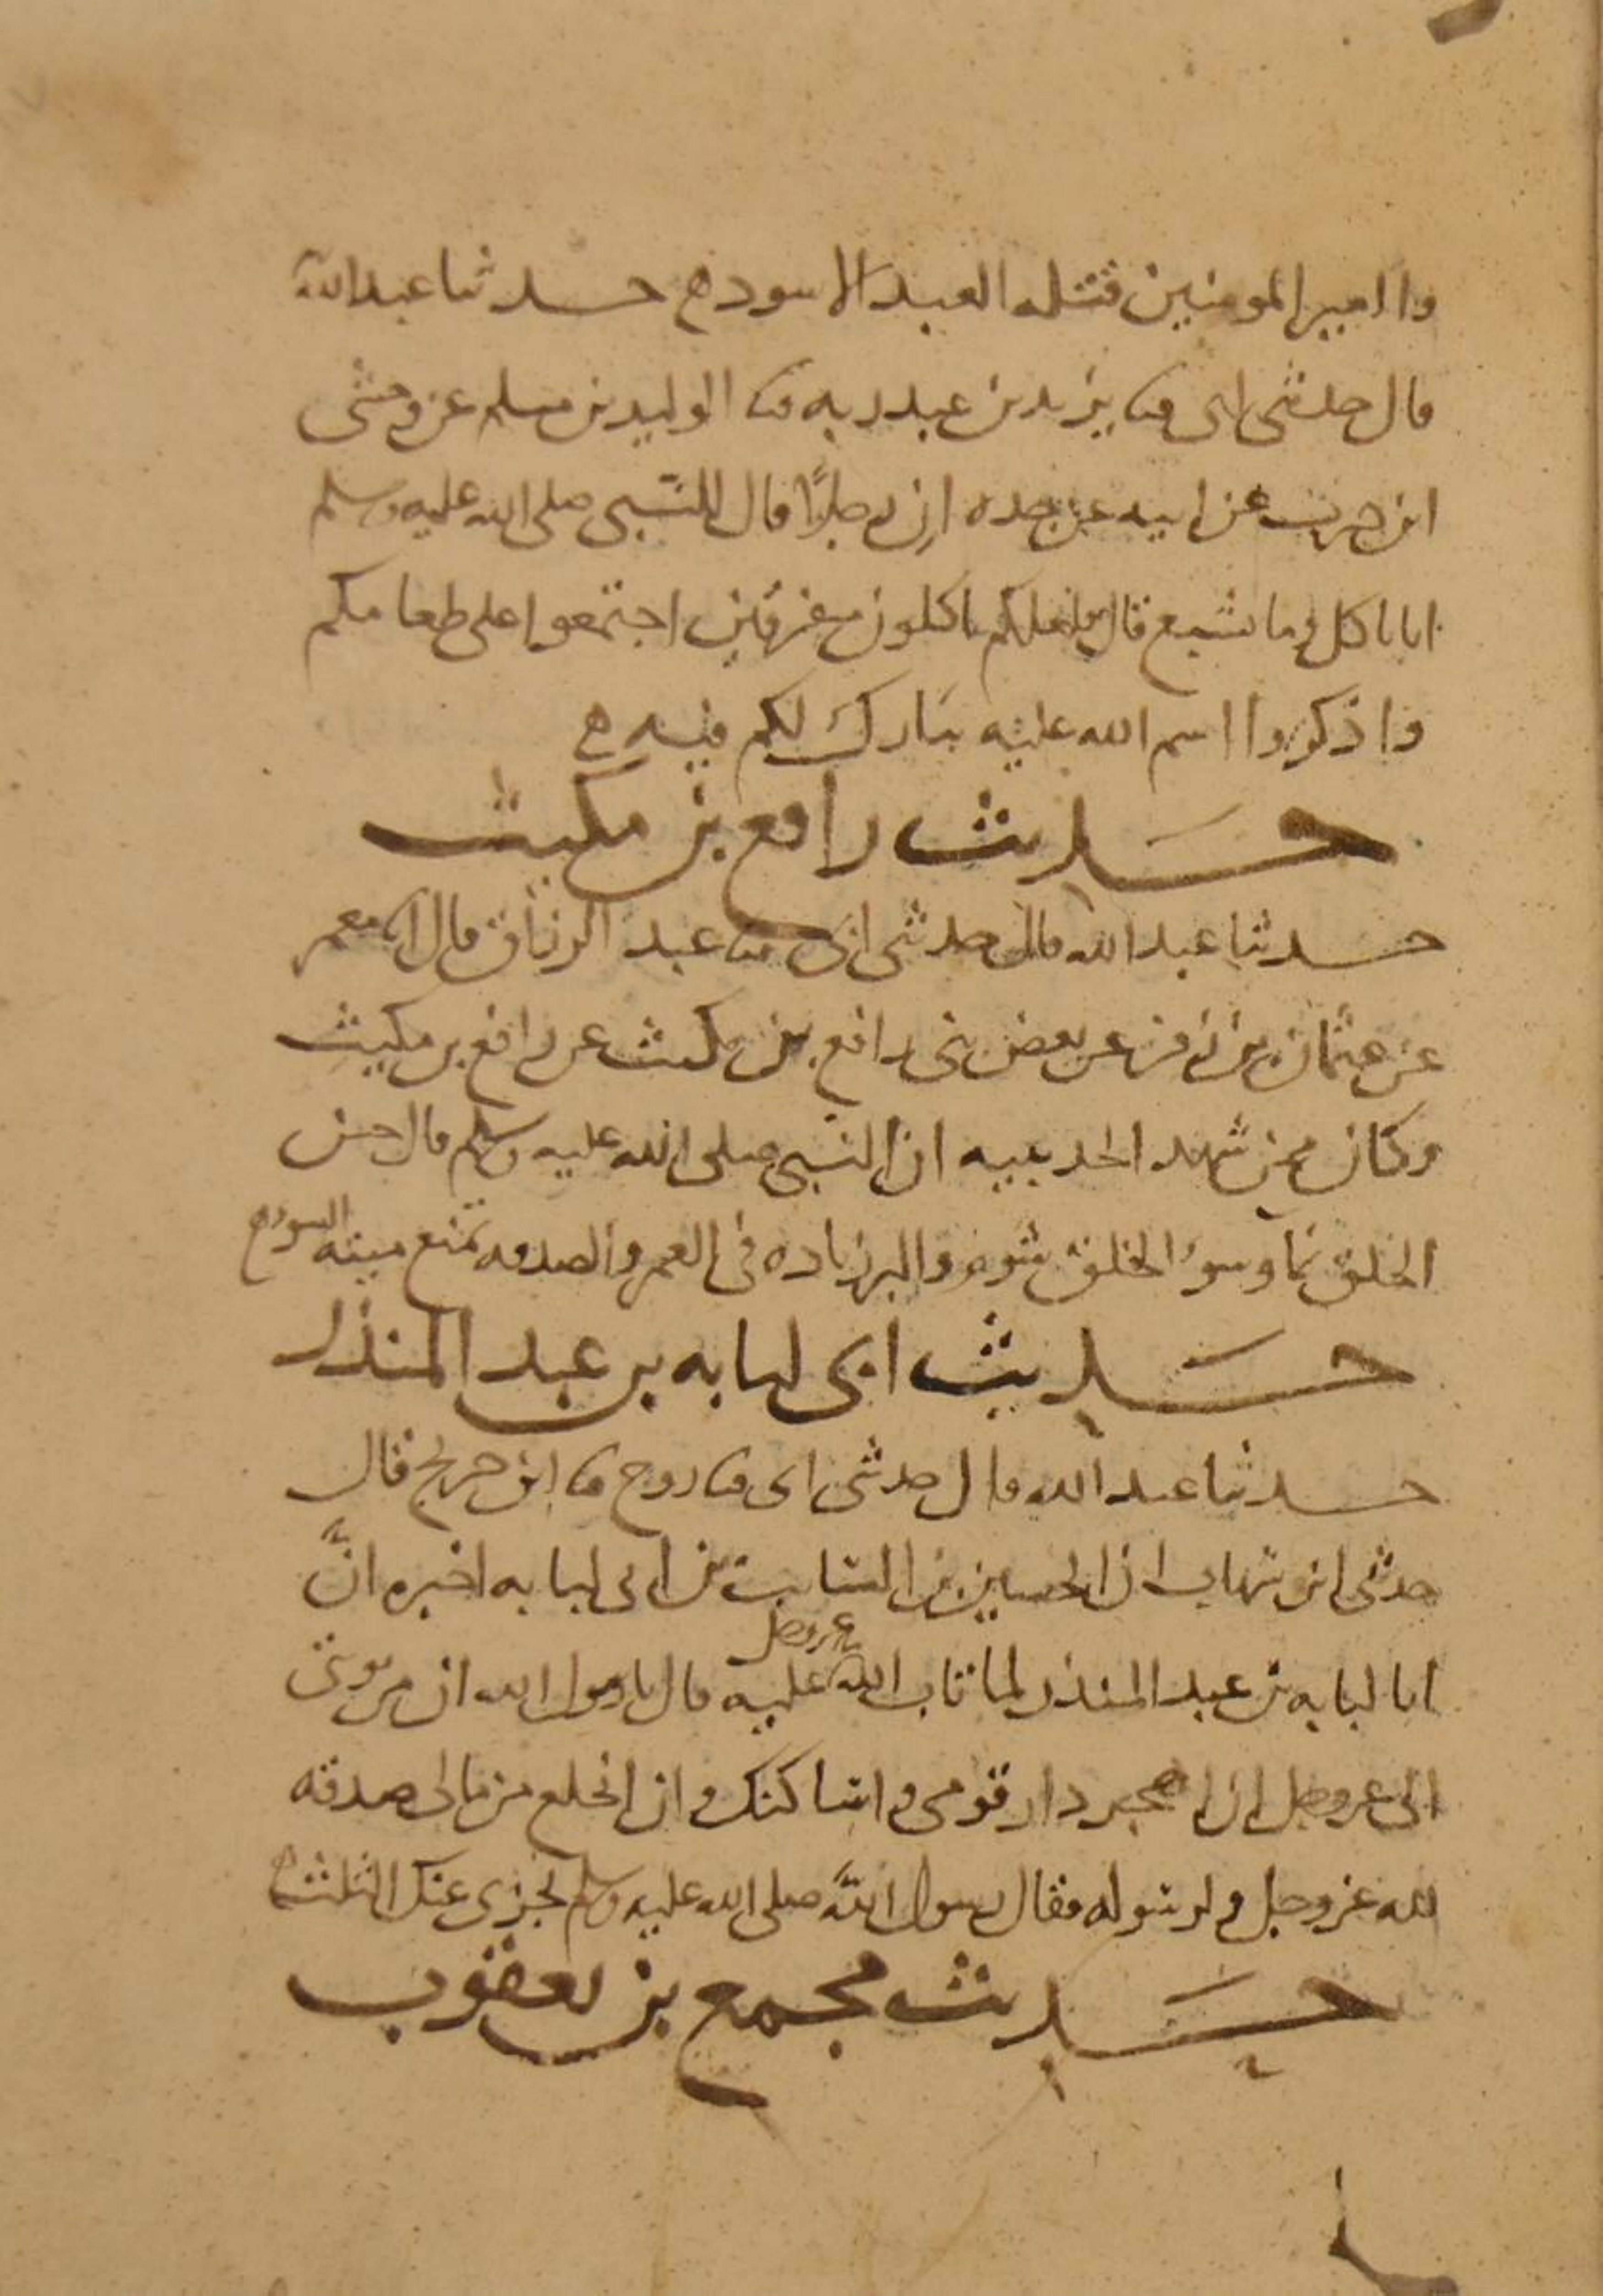 واامير المومنين قتله العبد الاسود ه حدثنا عبد الله
قال حدثني ابي ثنا يزيد بن عبد ربه ثنا الوليد بن مسلم عن وحشي
ابن حرب عن ابيه عن جده ان رجلا قال للنبي صلى الله عليه وسلم
انا ناكل وما نشبع قال فلعلكم تاكلون مفترقين اجتمعوا على طعامكم
واذكروا اسم الله عليه يبارك لكم فيه ه
حديث رافع بن مكيث
حدثنا عبد الله قال حدثني ابي ثنا عبد الرزاق قال انا معمر
عن عثمان بن زفر عن بعض بني رافع بن مكيث عن رافع بن مكيث
وكان ممن شهد الحديبيه ان النبي صلى الله عليه وسلم قال حسن
الخلق نما وسوء الخلق شوم والبر زياده في العمر والصدقه تمنع ميته السوء ه
حديث ابي لبابه بن عبد المنذر
حدثنا عبد الله قال حدثني ابي ثنا روح ثنا ابن جريج قال
حدثني ابن شهاب ان الحسين بن السايب بن ابي لبابه اخبره انَّ
ابا لبابه بن عبد المنذر لما تاب الله عز وجل عليه قال يا رسول الله ان من توبتي
الى عز وجل ان اهجر دار قومي واساكنك وان انخلع من مالي صدقه
لله عز وجل ولرسوله فقال رسول الله صلى الله عليه وسلم يجزي عنك الثلث ه
حديث مجمع بن يعقوب